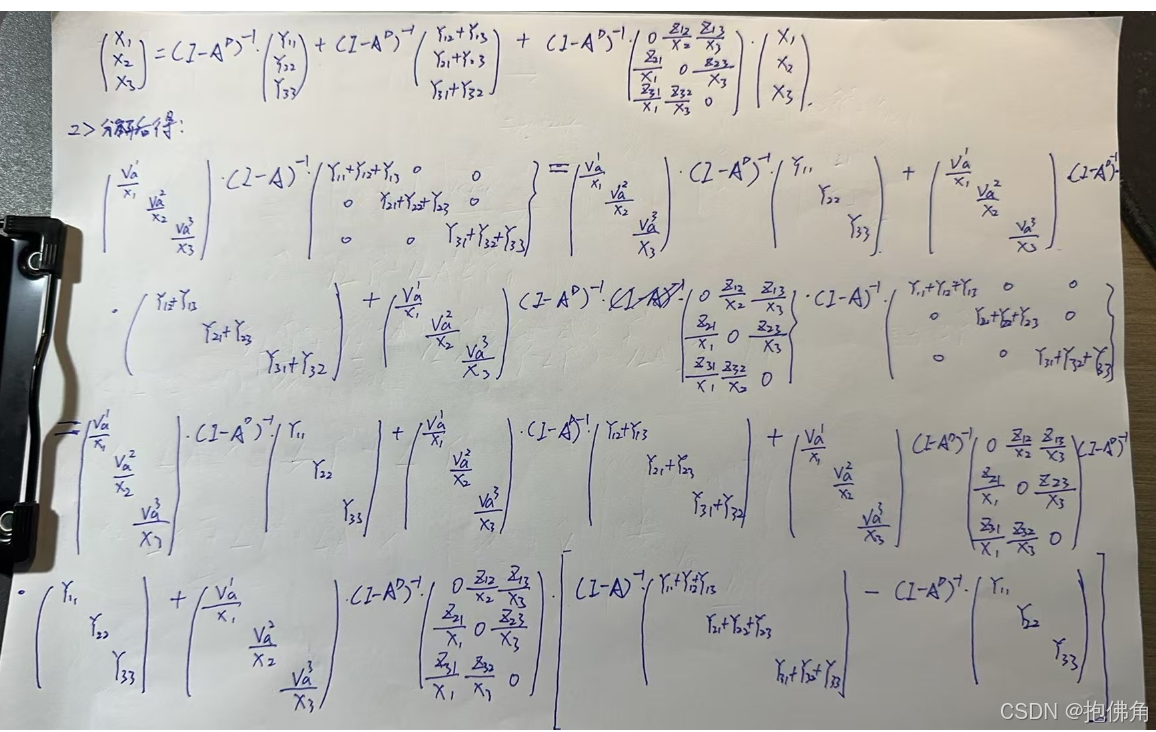 (X₁ X₂ X₃) = (I-Aᴰ)⁻¹·(Y₁₁ Y₂₂ Y₃₃) + (I-Aᴰ)⁻¹(Y₁₂+Y₁₃ Y₂₁+Y₂₃ Y₃₁+Y₃₂) + (I-Aᴰ)⁻¹·(0 Z₁₂/X₂ Z₁₃/X₃ Z₂₁/X₁ 0 Z₂₃/X₃ Z₃₁/X₁ Z₃₂/X₃ 0)·(X₁ X₂ X₃).
2> 分解后得:
(Va¹/X₁ Va²/X₂ Va³/X₃)·(I-A)⁻¹(Y₁₁+Y₁₂+Y₁₃ 0 0 0 Y₂₁+Y₂₂+Y₂₃ 0 0 0 Y₃₁+Y₃₂+Y₃₃) = (Va¹/X₁ Va²/X₂ Va³/X₃)·(I-Aᴰ)⁻¹·(Y₁₁ Y₂₂ Y₃₃) + (Va¹/X₁ Va²/X₂ Va³/X₃)·(I-Aᴰ)⁻¹
·(Y₁₂+Y₁₃ Y₂₁+Y₂₃ Y₃₁+Y₃₂) + (Va¹/X₁ Va²/X₂ Va³/X₃)(I-Aᴰ)⁻¹·(0 Z₁₂/X₂ Z₁₃/X₃ Z₂₁/X₁ 0 Z₂₃/X₃ Z₃₁/X₁ Z₃₂/X₂ 0)·(I-A)⁻¹·(Y₁₁+Y₁₂+Y₁₃ 0 0 0 Y₂₁+Y₂₂+Y₂₃ 0 0 0 Y₃₁+Y₃₂+Y₃₃)
= (Va¹/X₁ Va²/X₂ Va³/X₃)·(I-Aᴰ)⁻¹(Y₁₁ Y₂₂ Y₃₃) + (Va¹/X₁ Va²/X₂ Va³/X₃)·(I-Aᴰ)⁻¹(Y₁₂+Y₁₃ Y₂₁+Y₂₃ Y₃₁+Y₃₂) + (Va¹/X₁ Va²/X₂ Va³/X₃)(I-Aᴰ)⁻¹(0 Z₁₂/X₂ Z₁₃/X₃ Z₂₁/X₁ 0 Z₂₃/X₃ Z₃₁/X₁ Z₃₂/X₃ 0)(I-Aᴰ)⁻¹
·(Y₁₁ Y₂₂ Y₃₃) + (Va¹/X₁ Va²/X₂ Va³/X₃)·(I-Aᴰ)⁻¹(0 Z₁₂/X₂ Z₁₃/X₃ Z₂₁/X₁ 0 Z₂₃/X₃ Z₃₁/X₁ Z₃₂/X₃ 0)·[(I-A)⁻¹(Y₁₁+Y₁₂+Y₁₃ Y₂₁+Y₂₂+Y₂₃ Y₃₁+Y₃₂+Y₃₃) - (I-Aᴰ)⁻¹·(Y₁₁ Y₂₂ Y₃₃)]
CSDN @抱佛角